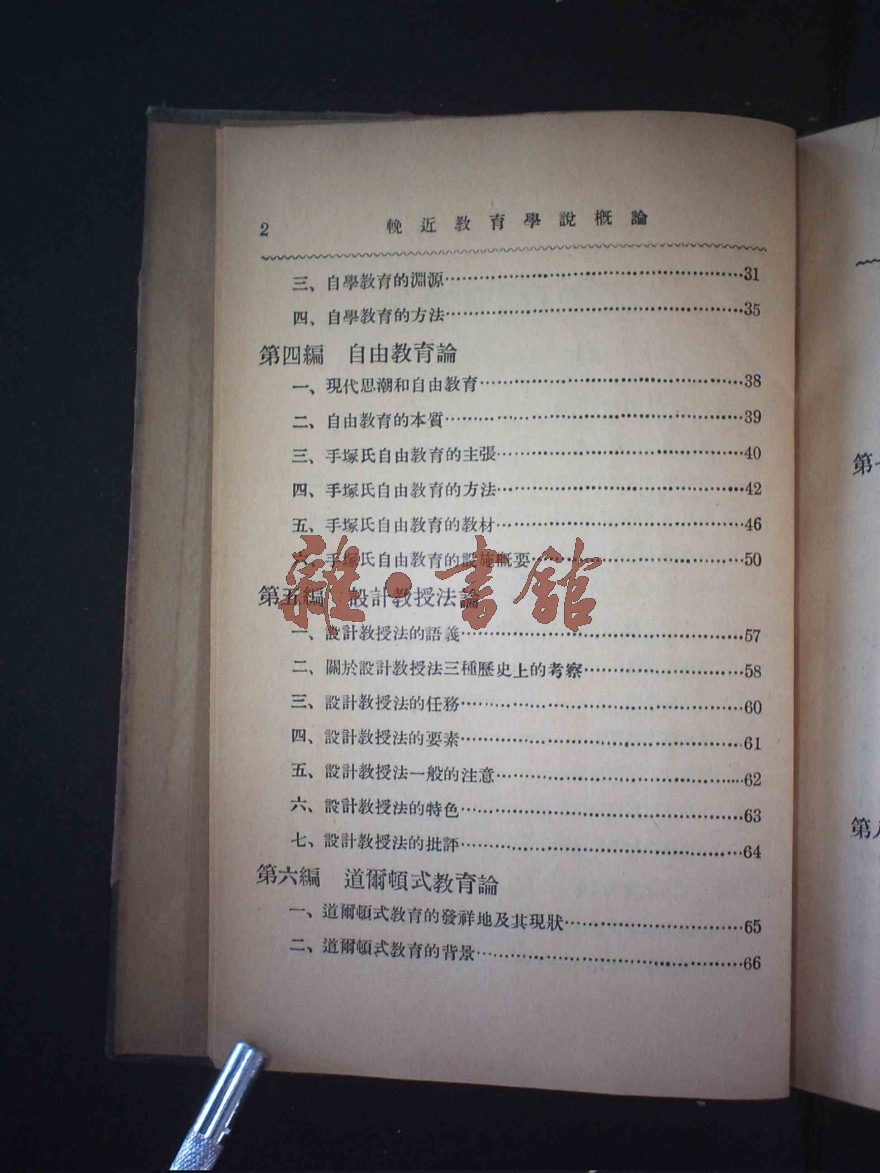 2 輓近教育學說概論
三、自學教育的淵源……31
四、自學教育的方法……35
第四編 自由教育論
一、現代思潮和自由教育……38
二、自由教育的本質……39
三、手塚氏自由教育的主張……40
四、手塚氏自由教育的方法……42
五、手塚氏自由教育的教材……46
六、手塚氏自由教育的設施概要……50
雜·書館
第五編 設計教授法論
一、設計教授法的語義……57
二、關於設計教授法三種歷史上的考察……58
三、設計教授法的任務……60
四、設計教授法的要素……61
五、設計教授法一般的注意……62
六、設計教授法的特色……63
七、設計教授法的批評……64
第六編 道爾頓式教育論
一、道爾頓式教育的發祥地及其現狀……65
二、道爾頓式教育的背景……66
第
第八